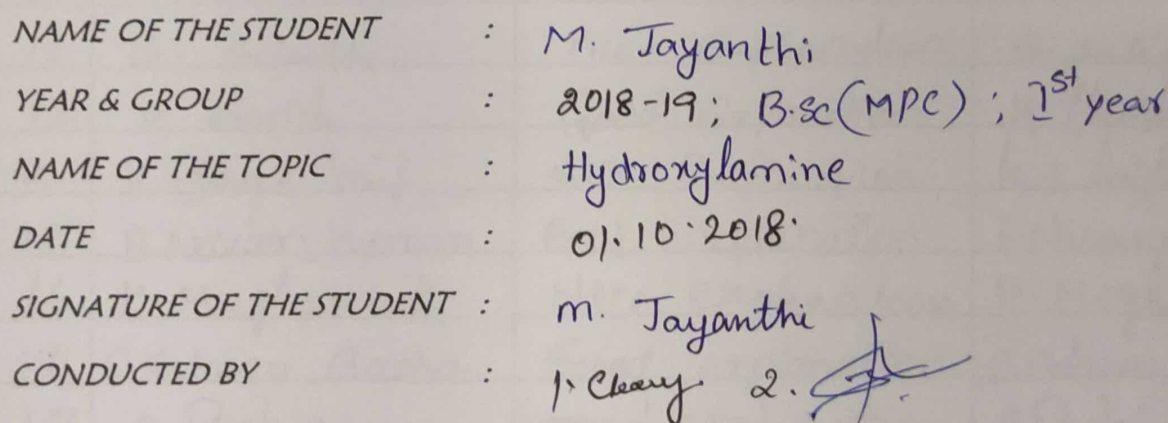 NAME OF THE STUDENT : M. Jayanthi
YEAR & GROUP : 2018-19; B.sc (MPC) ; 1st year
NAME OF THE TOPIC : Hydroxylamine
DATE : 01.10.2018.
SIGNATURE OF THE STUDENT : m. Jayanthi
CONDUCTED BY : 1. 2.